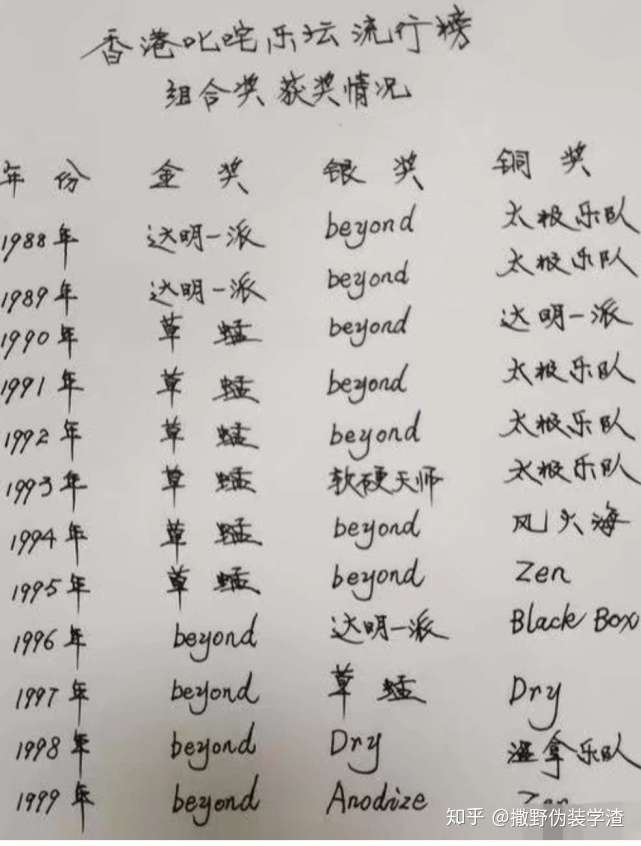 香港叱咤乐坛流行榜
组合奖获奖情况
年份 金奖 银奖 铜奖
1988年 达明一派 beyond 太极乐队
1989年 达明一派 beyond 太极乐队
1990年 草蜢 beyond 达明一派
1991年 草蜢 beyond 太极乐队
1992年 草蜢 beyond 太极乐队
1993年 草蜢 软硬天师 太极乐队
1994年 草蜢 beyond 风火海
1995年 草蜢 beyond Zen
1996年 beyond 达明一派 Black Box
1997年 beyond 草蜢 Dry
1998年 beyond Dry 温拿乐队
1999年 beyond Anodize Zen
知乎 @撒野伪装学渣